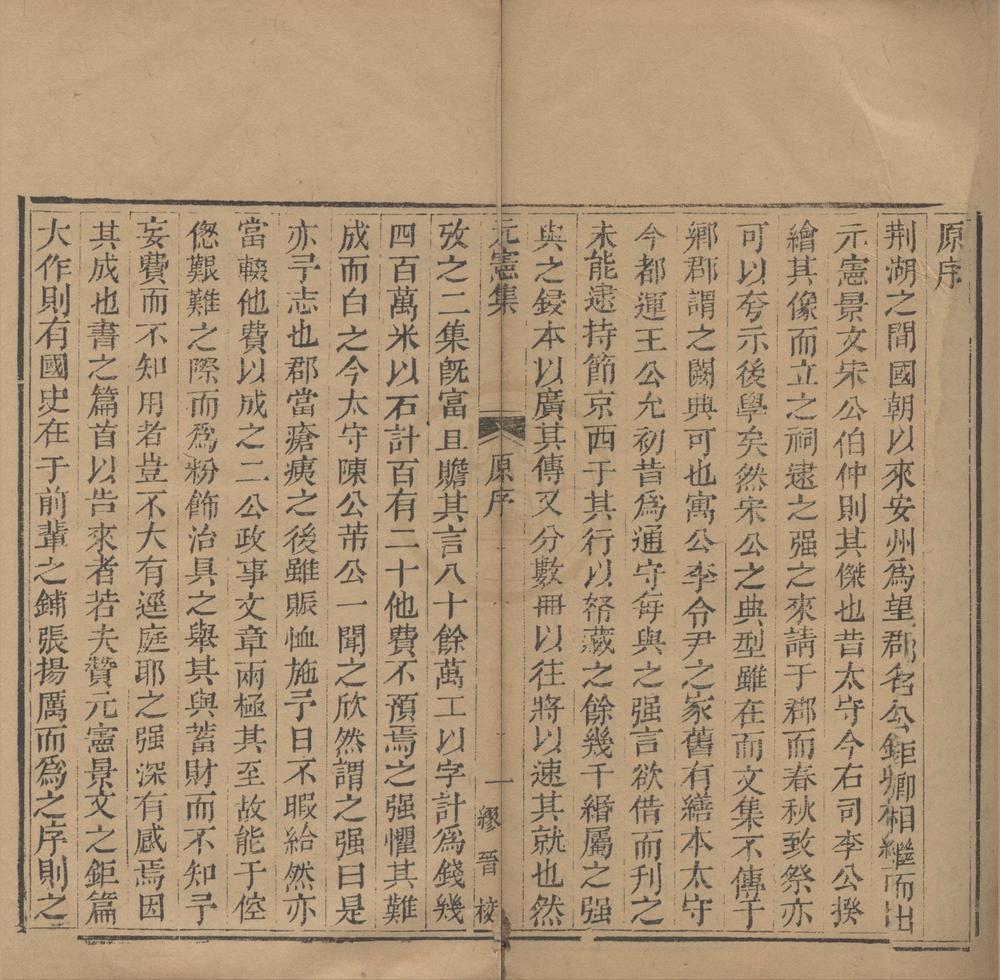 原序
荆湖之間國朝以來安州爲望郡名公鉅卿相繼而出
元憲景文宋公伯仲則其傑也昔太守今右司李公揆
繪其像而立之祠逮之强之來請于郡而春秋致祭亦
可以夸示後學矣然宋公之典型雖在而文集不傳于
鄉郡謂之闕典可也寓公李令尹之家舊有繕本太守
今都運王公允初昔爲通守每與之强言欲借而刊之
未能逮持節京西于其行以帑藏之餘幾千緡屬之强
與之鋟本以廣其傳又分數冊以往將以速其就也然
元憲集
原序
一
繆晉校
攷之二集旣富且贍其言八十餘萬工以字計爲錢幾
四百萬米以石計百有二十他費不預焉之强懼其難
成而白之今太守陳公芾公一聞之欣然謂之强曰是
亦予志也郡當瘡痍之後雖賑恤施予日不暇給然亦
當輟他費以成之二公政事文章兩極其至故能于倥
偬艱難之際而爲粉飾治具之舉其與蓄財而不知予
妄費而不知用者豈不大有逕庭耶之强深有感焉因
其成也書之篇首以告來者若夫贊元憲景文之鉅篇
大作則有國史在于前輩之鋪張揚厲而爲之序則之